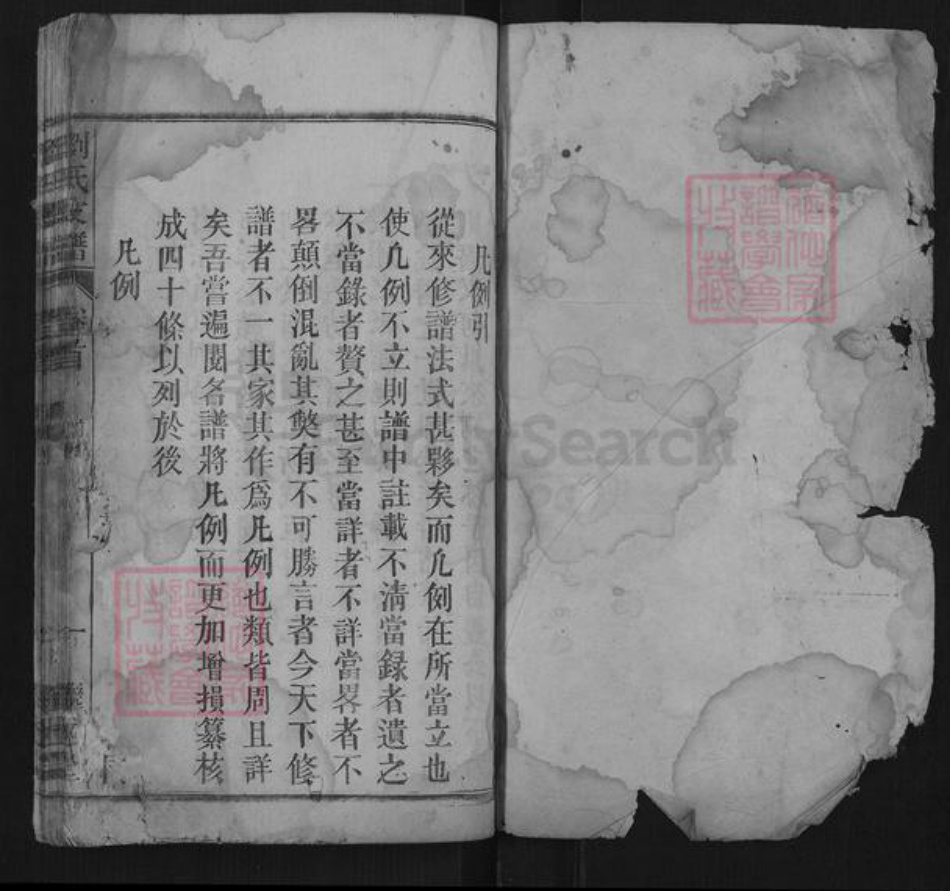 凡例引
從來修譜法式甚夥矣而凡例在所當立也
使凡例不立則譜中註載不清當録者遺之
不當錄者贅之甚至當詳者不詳當畧者不
畧顛倒混亂其獘有不可勝言者今天下修
譜者不一其家其作爲凡例也類皆周且詳
矣吾嘗遍閱名譜將凡例而更加增損纂核
成四十條以列於後
凡例
劉氏支譜
首